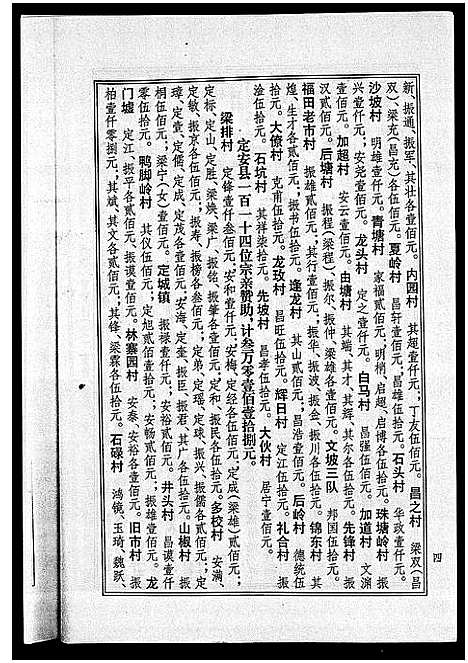 新、振通、振军、其壮各壹佰元。内园村 其超壹仟元；丁友伍佰元。昌之村 梁双(昌
双)、梁充(昌充)各伍佰元。夏岭村 昌轩壹佰元；昌雄伍拾元。石头村 华政壹仟元。
沙坡村 明雄壹仟元。青塘村 家福贰佰元；明梢、启超、启博各伍拾元。珠塘岭村 振
兴壹仟元；安尧壹佰元。龙头村 定之壹仟元。白马村 昌强伍佰元。加道村 文演
壹佰元。加超村 安云壹佰元。由塘村 其端、其才、其辉、其尔各伍佰元。先锋村 其
汉贰佰元。后塘村 振程(梁程)、振尔、振仲、梁雄各壹佰元。文坡三队 邦国伍拾元。
福田老市村 振雄贰佰元；其行壹佰元；振华、振波、振金、振川各伍拾元。锦东村 其
煌、生才各贰佰元；振书伍拾元。逢龙村 其山贰佰元；昌浩壹佰元。后岭村 德统伍
拾元。大僚村 克甫伍拾元。龙玫村 昌旺伍拾元。辉日村 定江伍拾元。礼合村 振
淦伍拾元。石坑村 其祥柒拾元。先坡村 昌孝伍拾元。大伙村 居宁壹佰元。
定安县一百一十四位宗亲赞助，计叁万零壹佰壹拾捌元。
梁排村 定锋壹仟叁佰元；安和壹仟元；安梅、定经各伍佰元；定成(梁雄)贰佰元；
定标、定山、定胜、梁焕、梁广、振铭、振肇各壹佰元；定和、振民各伍拾元。多校村 安满、
定敏、振京各伍佰元；振寿、振榜各叁佰元；定弟、定瑶、定球、振兴、振儒各贰佰元；定
璋、定壹、定儒、定成、定茂各壹佰元；安海、定奎、振臣、振君、其广各伍拾元。山椒村 振
桐伍佰元；梁宁(女)壹佰元。定城镇 振禄壹仟元；安裕贰佰元。井头村 昌谟壹仟
零伍拾元。鸭脚岭村 其仪伍佰元；定旭贰佰壹拾元；安畅贰佰元；振雄壹佰元。龙
门墟 定江、振平各贰佰元、振谟壹佰元。林寨园村 安泰、安裕各壹佰元。旧市村 振
柏壹仟零捌元；其斌、其文各贰佰元；其锋、梁霖各伍拾元。石碌村 鸿镜、玉琦、魏跃、
四